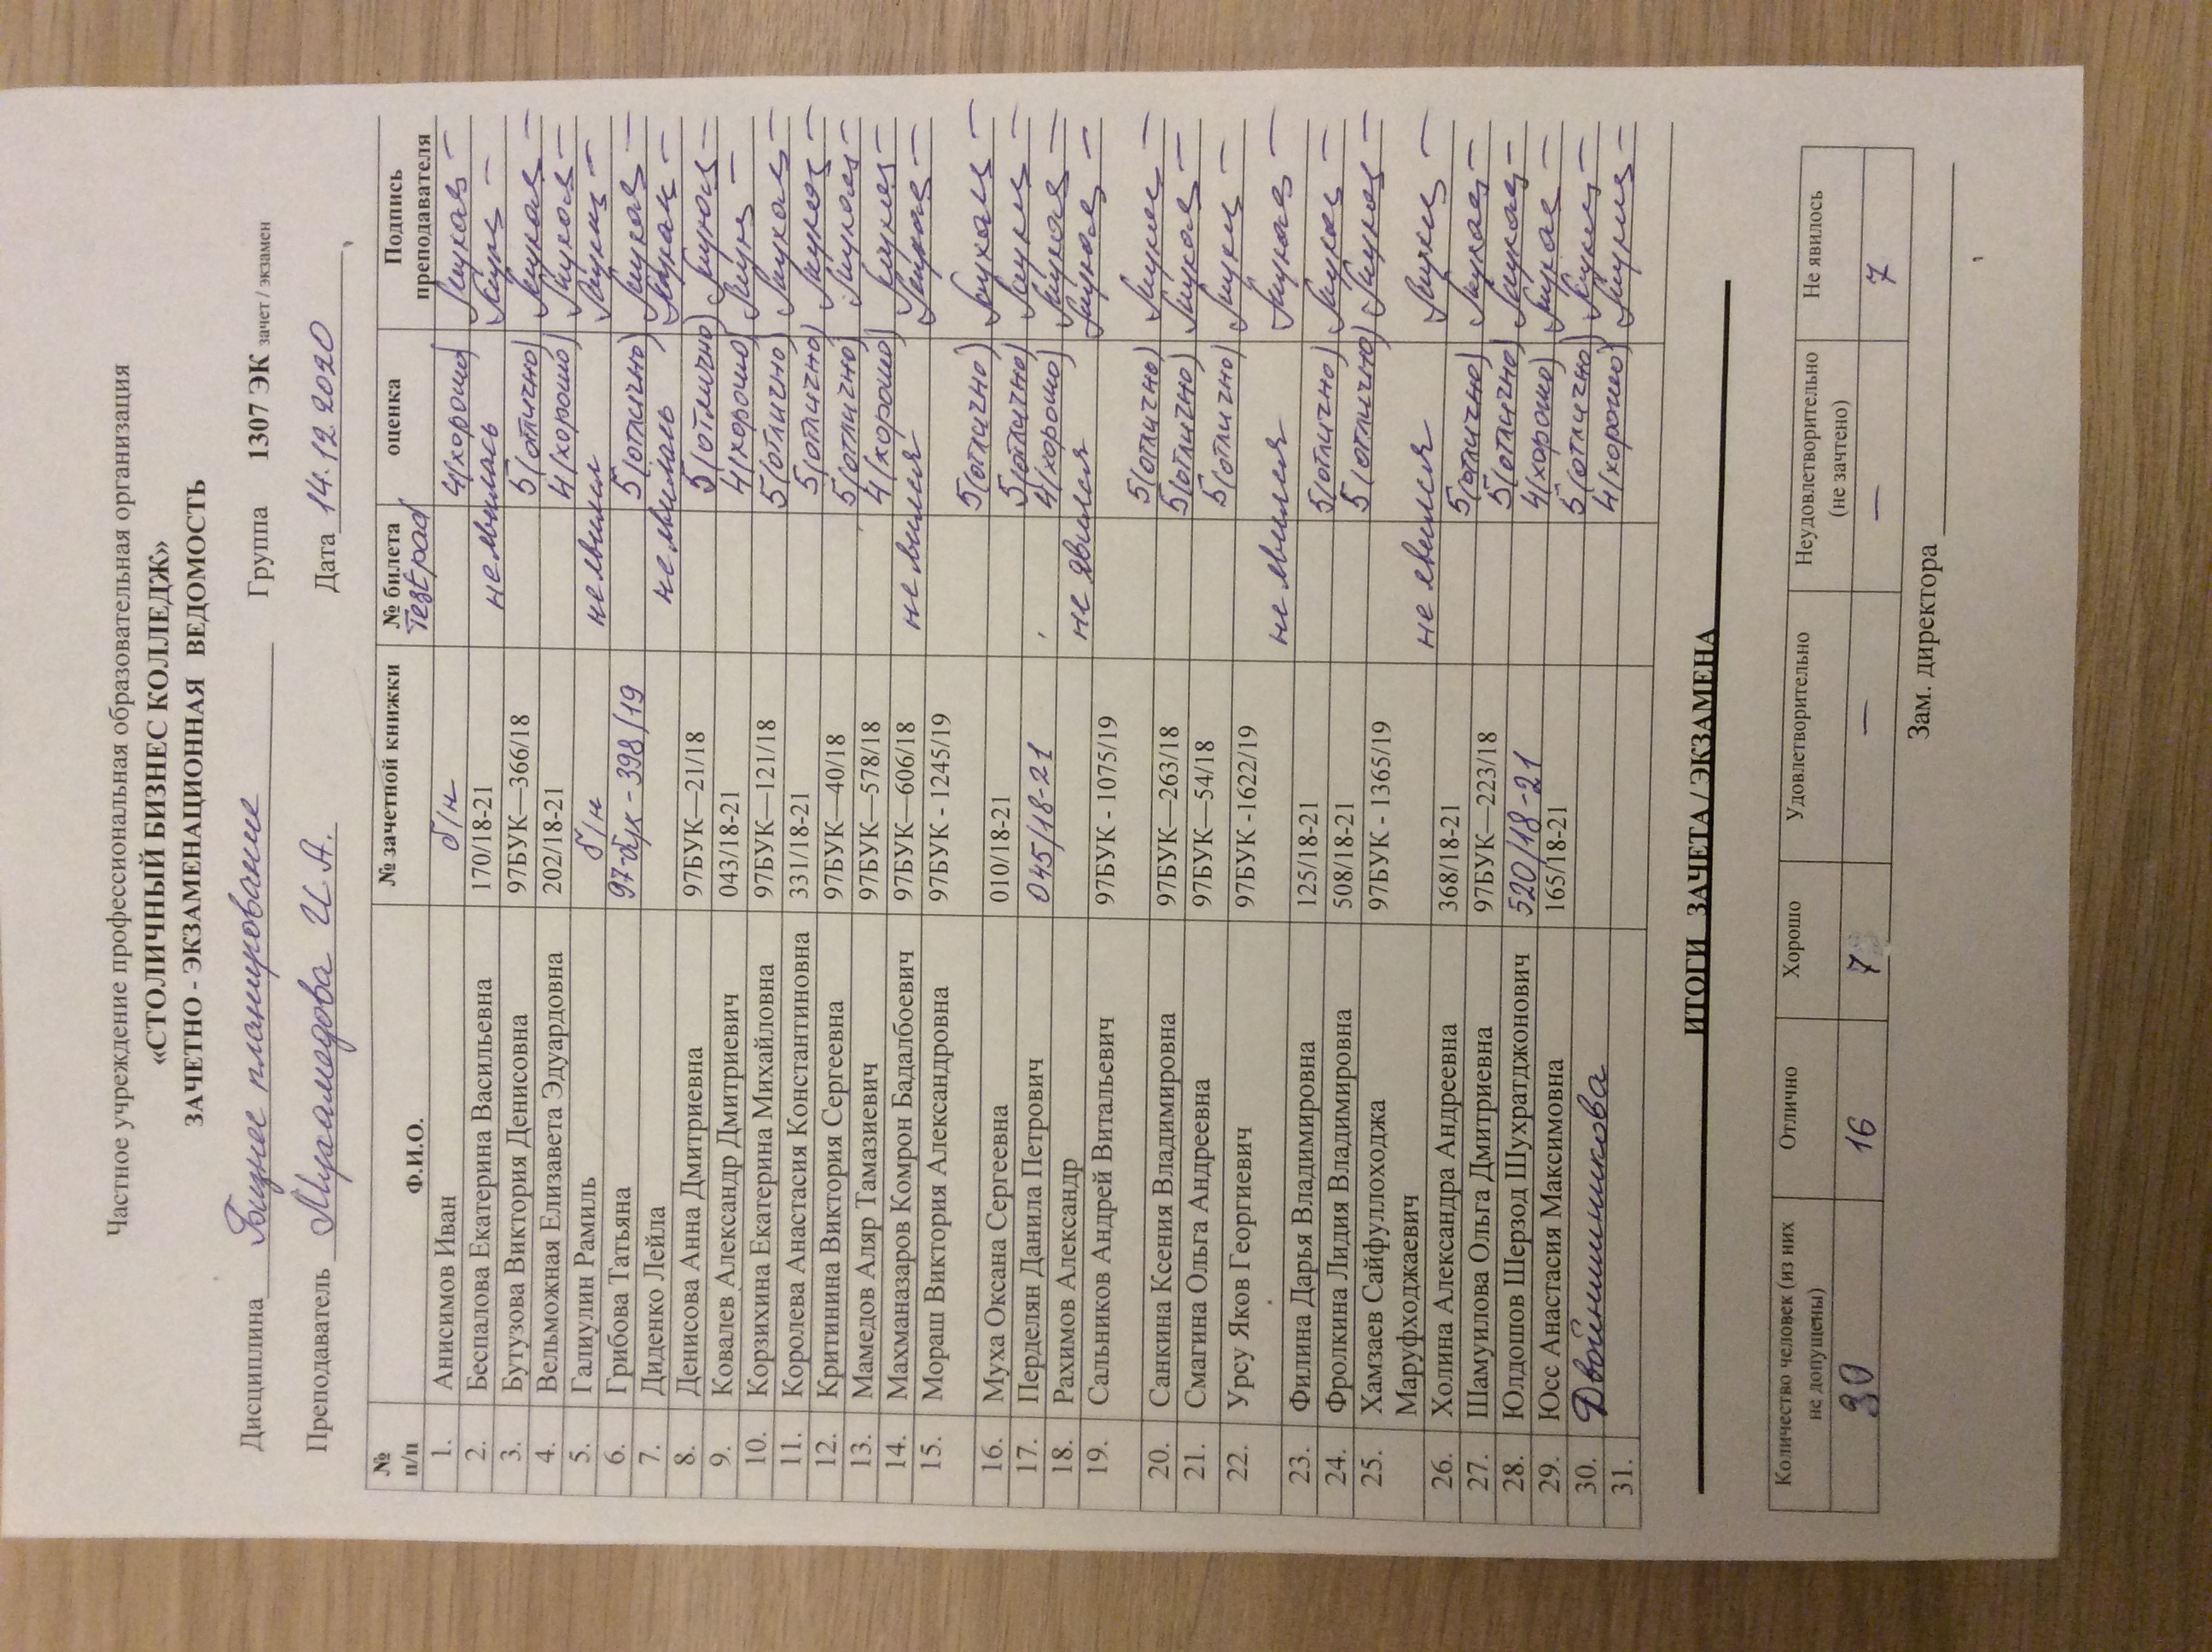 Частное учреждение профессиональная образовательная организация
«СТОЛИЧНЫЙ БИЗНЕС КОЛЛЕДЖ»
ЗАЧЕТНО - ЭКЗАМЕНАЦИОННАЯ ВЕДОМОСТЬ
Дисциплина Бизнес планирование Группа 1307 ЭК зачет / экзамен
Преподаватель Мухамедова И.А. Дата 14.12.2020
№ п/п Ф.И.О. № зачетной книжки № билета Testpad оценка Подпись преподавателя
1. Анисимов Иван б/н 4(хорошо)
2. Беспалова Екатерина Васильевна 170/18-21 не явилась
3. Бутузова Виктория Денисовна 97БУК—366/18 5(отлично)
4. Вельможная Елизавета Эдуардовна 202/18-21 4(хорошо)
5. Галиулин Рамиль б/н не явился
6. Грибова Татьяна 97-бук-398/19 5(отлично)
7. Диденко Лейла не явилась
8. Денисова Анна Дмитриевна 97БУК—21/18 5(отлично)
9. Ковалев Александр Дмитриевич 043/18-21 4(хорошо)
10. Корзихина Екатерина Михайловна 97БУК—121/18 5(отлично)
11. Королева Анастасия Константиновна 331/18-21 5(отлично)
12. Критинина Виктория Сергеевна 97БУК—40/18 5(отлично)
13. Мамедов Аляр Тамазиевич 97БУК—578/18 4(хорошо)
14. Махманазаров Комрон Бадалбоевич 97БУК—606/18 не явился
15. Мораш Виктория Александровна 97БУК - 1245/19 5(отлично)
16. Муха Оксана Сергеевна 010/18-21 5(отлично)
17. Перделян Данила Петрович 045/18-21 4(хорошо)
18. Рахимов Александр не явился
19. Сальников Андрей Витальевич 97БУК - 1075/19 5(отлично)
20. Санкина Ксения Владимировна 97БУК—263/18 5(отлично)
21. Смагина Ольга Андреевна 97БУК—54/18 5(отлично)
22. Урсу Яков Георгиевич 97БУК -1622/19 не явился
23. Филина Дарья Владимировна 125/18-21 5(отлично)
24. Фролкина Лидия Владимировна 508/18-21 5(отлично)
25. Хамзаев Сайфуллоходжа 97БУК - 1365/19
Маруфходжаевич не явился
26. Холина Александра Андреевна 368/18-21 5(отлично)
27. Шамуилова Ольга Дмитриевна 97БУК—223/18 5(отлично)
28. Юлдошов Шерзод Шухратджонович 520/18-21 4(хорошо)
29. Юсс Анастасия Максимовна 165/18-21 5(отлично)
30. 4(хорошо)
31.
ИТОГИ ЗАЧЕТА / ЭКЗАМЕНА
Количество человек (из них не допущены) Отлично Хорошо Удовлетворительно Неудовлетворительно (не зачтено) Не явилось
30 16 7 — — 7
Зам. директора